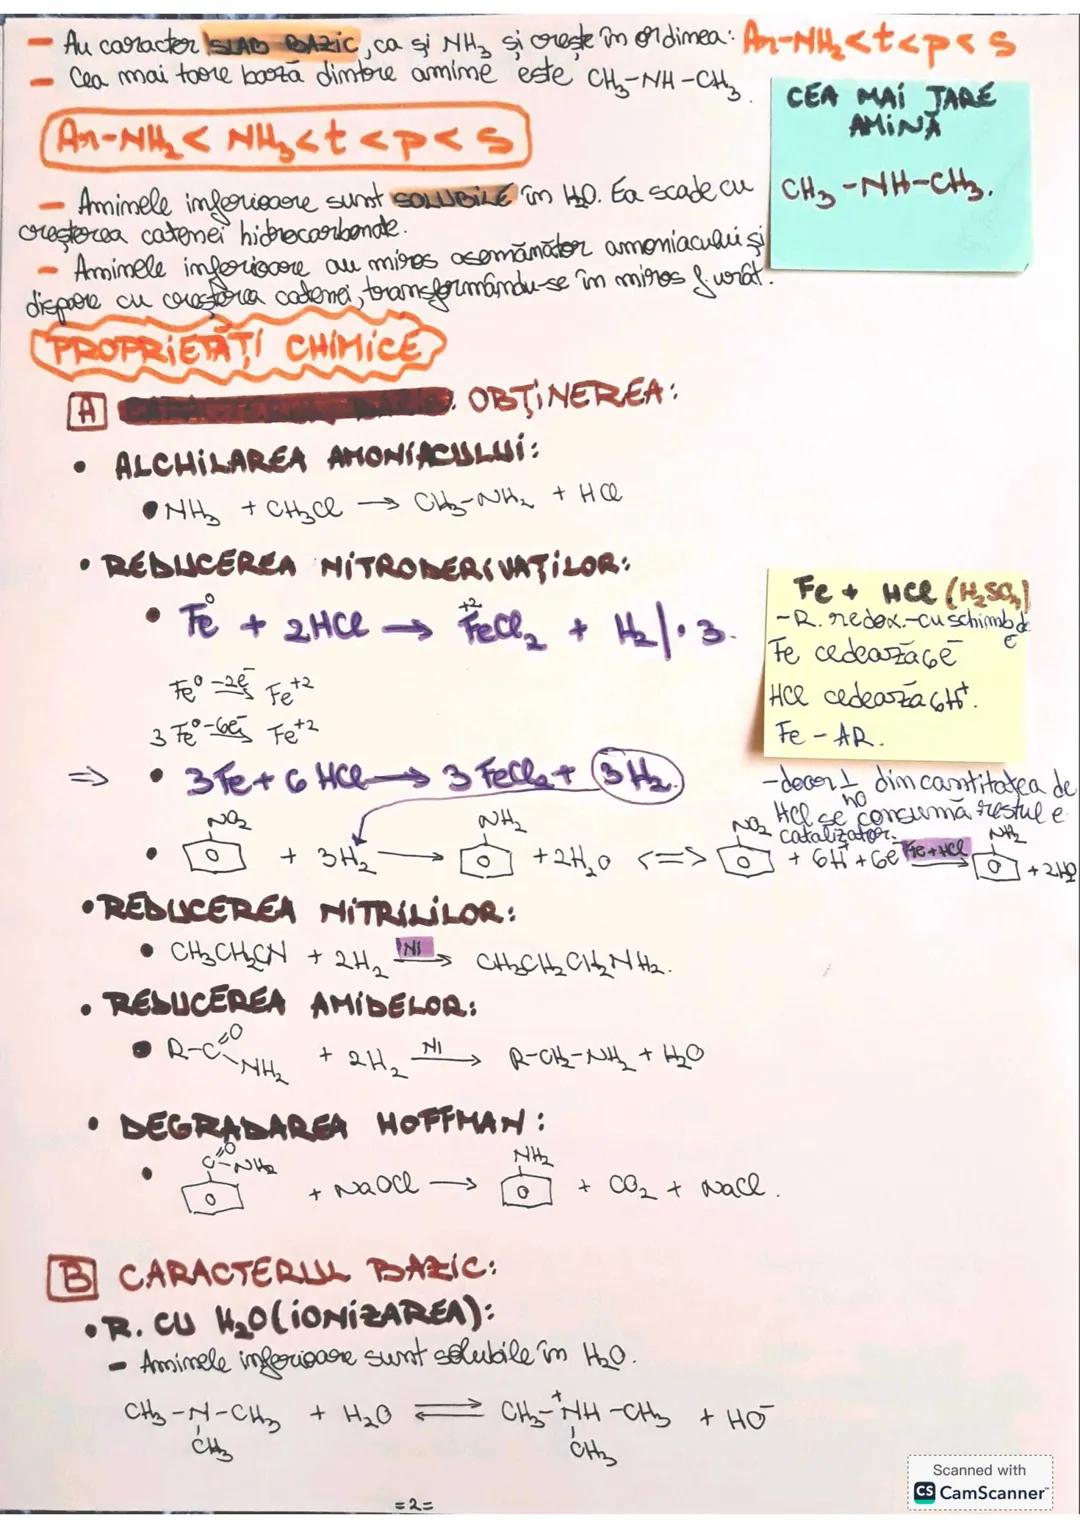 - Au caracter SLAB BAZIC, ca și NH₃ și crește în ordinea: Ar-NH₂<t<p<s
- Cea mai tare bază dintre amine este CH₃-NH-CH₃.
CEA MAI TARE
AMINĂ
CH₃-NH-CH₃.
Ar-NH₂< NH₃<t<p<s
- Aminele inferioare sunt SOLUBILE în H₂O. Ea scade cu
creșterea catenei hidrocarbonate.
- Aminele inferioare au miros asemănător amoniacului și
dispare cu creșterea catenei, transformându-se în miros f. urât.
PROPRIETĂȚI CHIMICE
A . OBȚINEREA:
• ALCHILAREA AMONIACULUI:
• NH₃ + CH₃Cl → CH₃-NH₂ + HCl
• REDUCEREA NITRODERIVAȚILOR:
• Fe⁰ + 2HCl → Fe⁺²Cl₂ + H₂ |·3.
Fe⁰ -2e⁻→ Fe⁺²
3 Fe⁰ -6e⁻→ Fe⁺²
Fe + HCl (H₂SO₄)
- R. redox.-cu schimb de e⁻
Fe cedează 6e⁻
HCl cedează 6H⁺.
Fe - AR.
⇒ • 3Fe + 6 HCl → 3 FeCl₂ + 3H₂.
- doar 1/40 din cantitatea de
HCl se consumă restul e
catalizator.
NO₂ NH₂ NO₂ NH₂
• + 3H₂ → + 2H₂O <=> + 6H⁺ + 6e⁻ Fe+HCl→ + 2H₂O
• REDUCEREA NITRILILOR:
• CH₃CH₂CN + 2H₂ Ni→ CH₃CH₂CH₂NH₂.
• REDUCEREA AMIDELOR:
• R-C=O NH₂ + 2H₂ Ni→ R-CH₂-NH₂ + H₂O
• DEGRADAREA HOFFMAN:
• C=O-NH₂ + NaOCl → NH₂ + CO₂ + NaCl.
B CARACTERUL BAZIC:
• R. CU H₂O (IONIZAREA):
- Aminele inferioare sunt solubile în H₂O.
CH₃-N-CH₃ + H₂O ⇌ CH₃-⁺NH-CH₃ + HO⁻
CH₃ CH₃
=2=
Scanned with
CS CamScanner